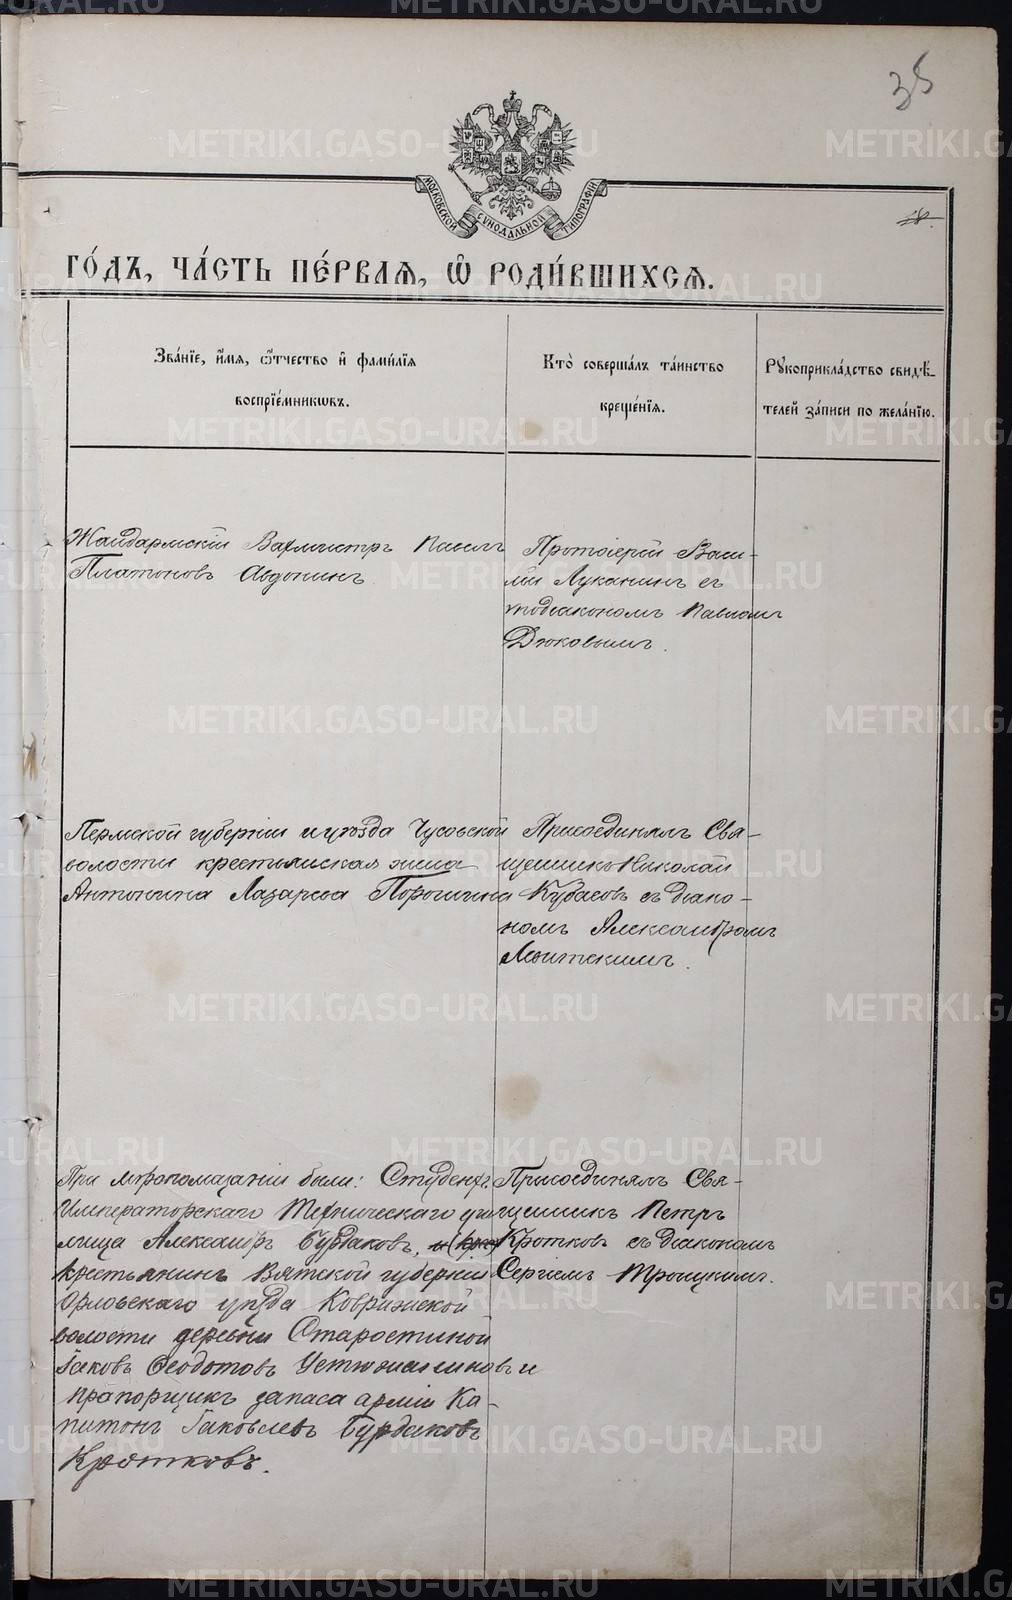 35
МОСКОВСКОЙ СѴНОДАЛЬНОЙ ТИПОГРАФІИ
18.
ГО́ДЪ, ЧА́СТЬ ПЕ́РВАѦ, Ѽ РОДИ́ВШИХСѦ.
Зва́нїе, и҆́мѧ, ѻ҆́тчество и҆ фами́лїѧ
воспрїе́мникѡвъ.
Кто̀ соверша́лъ та́инство
креще́нїѧ.
Рꙋкоприкла́дство свидѣ́-
телей за́писи по жела́нїю.
Жандармскій Вахмистръ Павелъ
Платоновъ Авдонинъ.
Протоіерей Васи-
лій Луканинъ съ
подіакономъ Павломъ
Дюковымъ.
Пермской губерніи и уѣзда Чусовской
волости крестьянская жена
Антонина Лазарева Порошина
Присоединялъ Свя-
щенникъ Николай
Кубасовъ съ діако-
номъ Александромъ
При мѵропомазаніи были: Студентъ
Императорскаго Техническаго учи-
лища Александръ Бурдаковъ,
крестьянинъ Вятской губерніи
Орловскаго уѣзда Ковринской
волости деревни Старостиной
Іаковъ Ѳеодотовъ Устюжаниновъ и
прапорщикъ запаса арміи Ка-
питонъ Іаковлевъ Бурдаковъ
Кротковъ.
Присоединялъ Свя-
щенникъ Петръ
Кротковъ съ діакономъ
Сергіемъ Троицкимъ.
METRIKI.GASO-URAL.RU